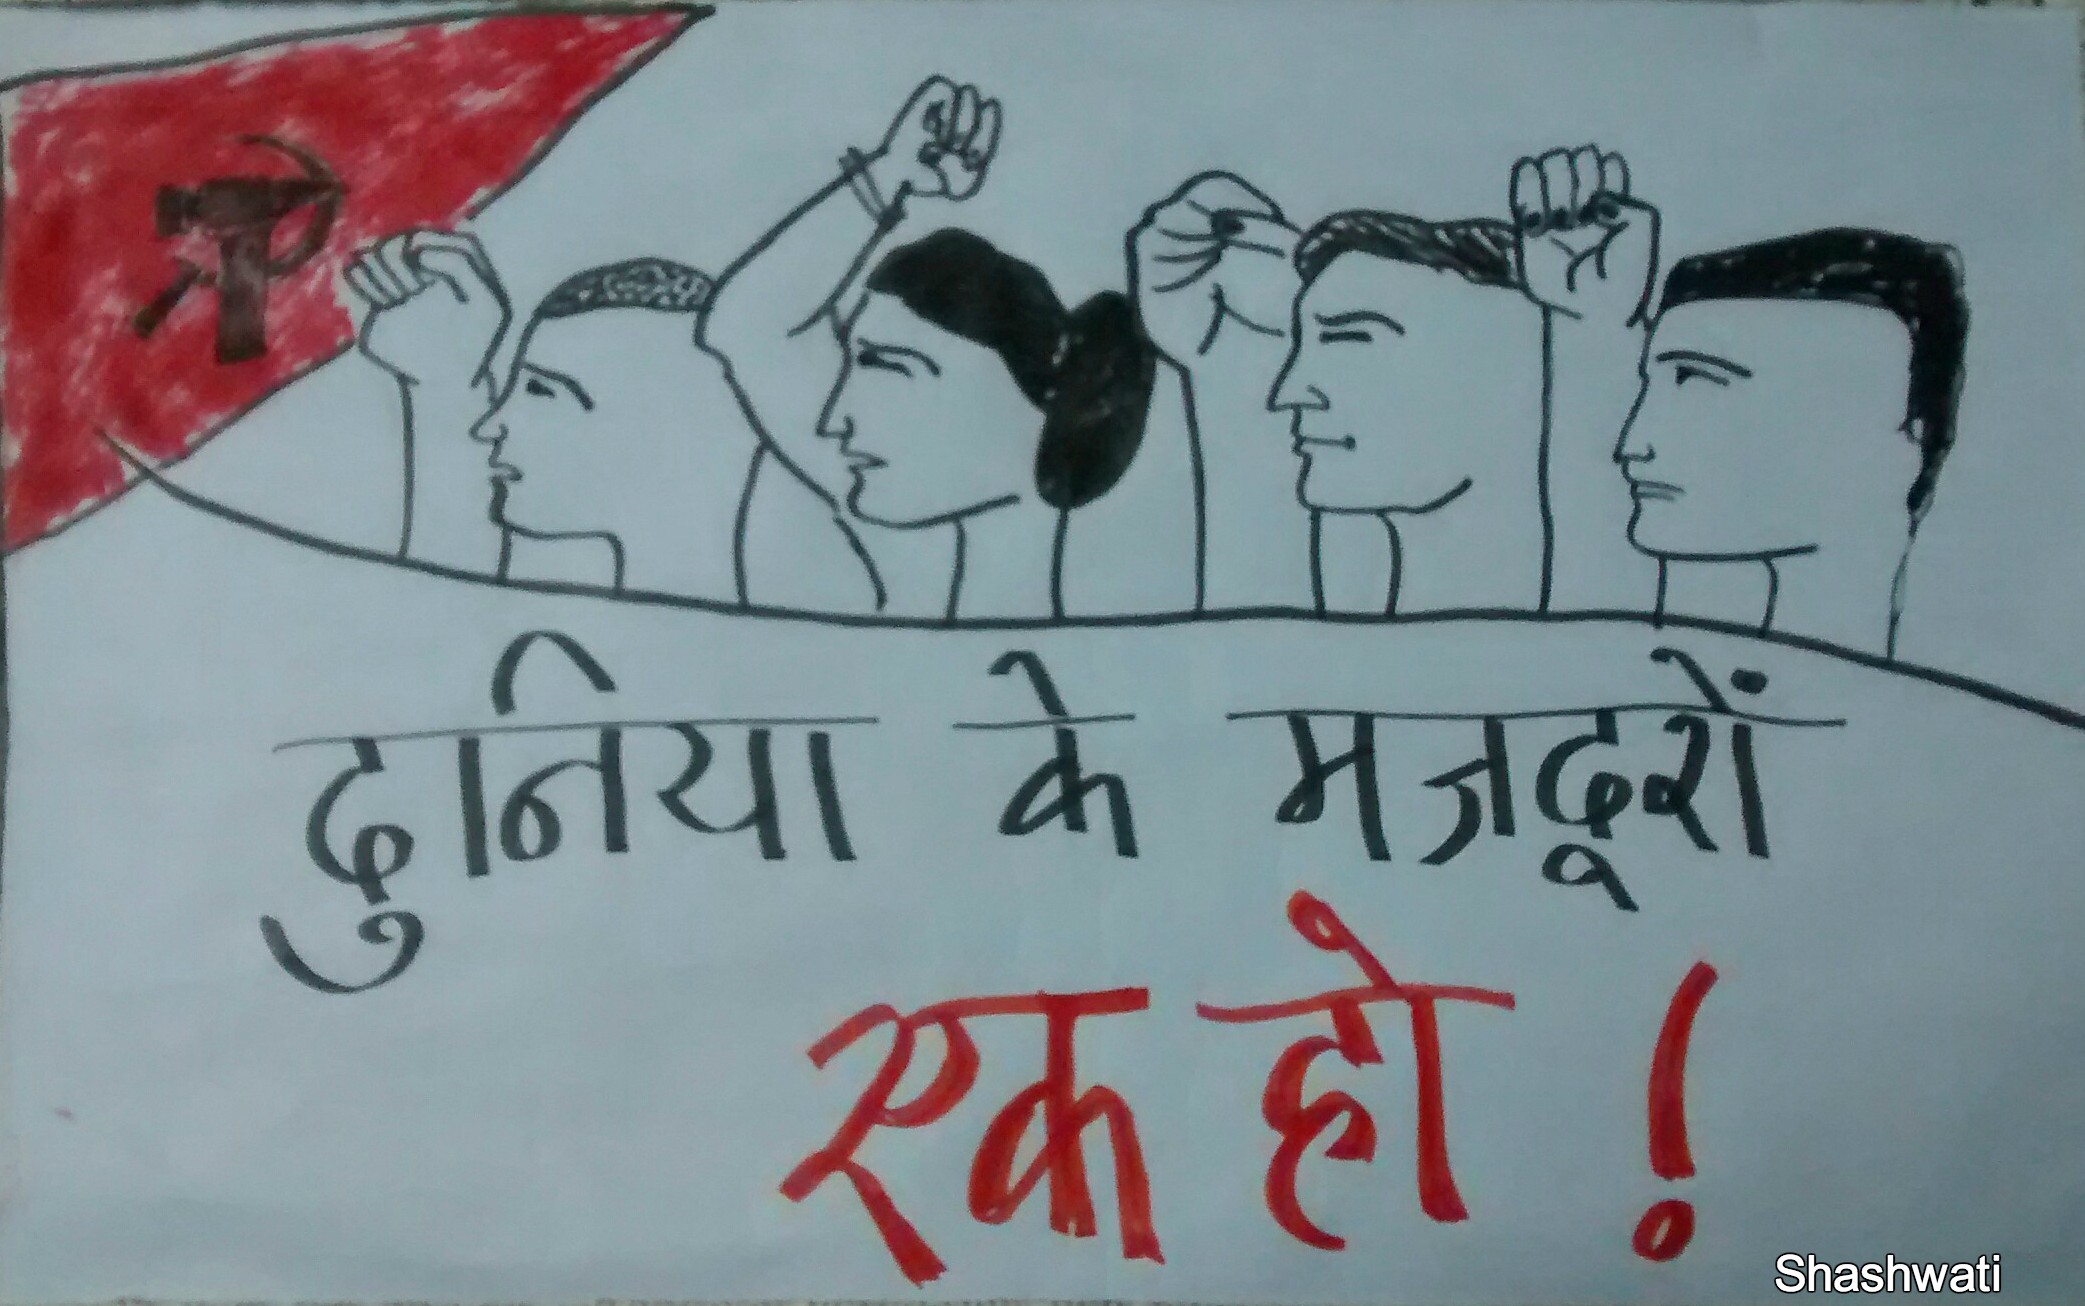 दुनिया के मजदूरों
एक हो !
Shashwati